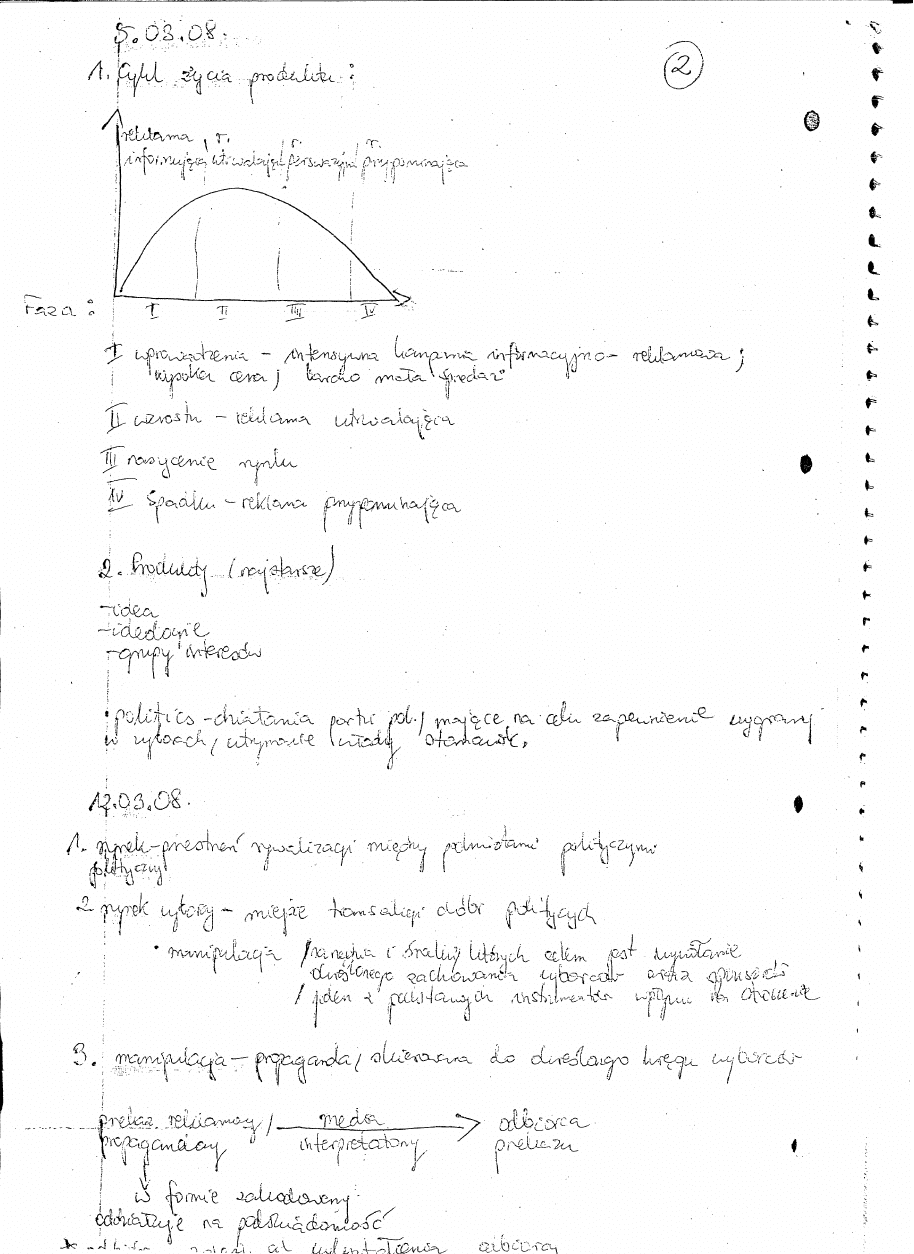 5.03.08.
2
1. Cykl życia produktu:
reklama , r. r. r.
informująca utrwalająca perswazyjna przypominająca
Faza: I II III IV
I wprowadzenia - intensywna kampania informacyjno - reklamowa;
wysoka cena; bardzo mała sprzedaż
II wzrostu - reklama utrwalająca
III nasycenie rynku
IV Spadku - reklama przypominająca
2. Produkty (najstarsze)
-idea
-ideologie
-grupy interesów
• politics - działania partii pol./ mające na celu zapewnienie wygranej
w wyborach/ utrzymanie władzy stanowisk.
12.03.08.
1. rynek - przestrzeń rywalizacji między podmiotami politycznymi
polityczny
2 rynek wyborczy - miejsce transakcji dóbr politycznych
• manipulacja / i których celem jest wywołanie
określonego zachowania wyborców
/ jeden z podstawowych instrumentów wpływu na otoczenie
3. manipulacja - propaganda/ skierowana do określonego kręgu wyborców
przekaz reklamowy/ media odbiorca
propagandowy interpretatorzy przekazu
w formie zakodowanej
oddziałuje na podświadomość